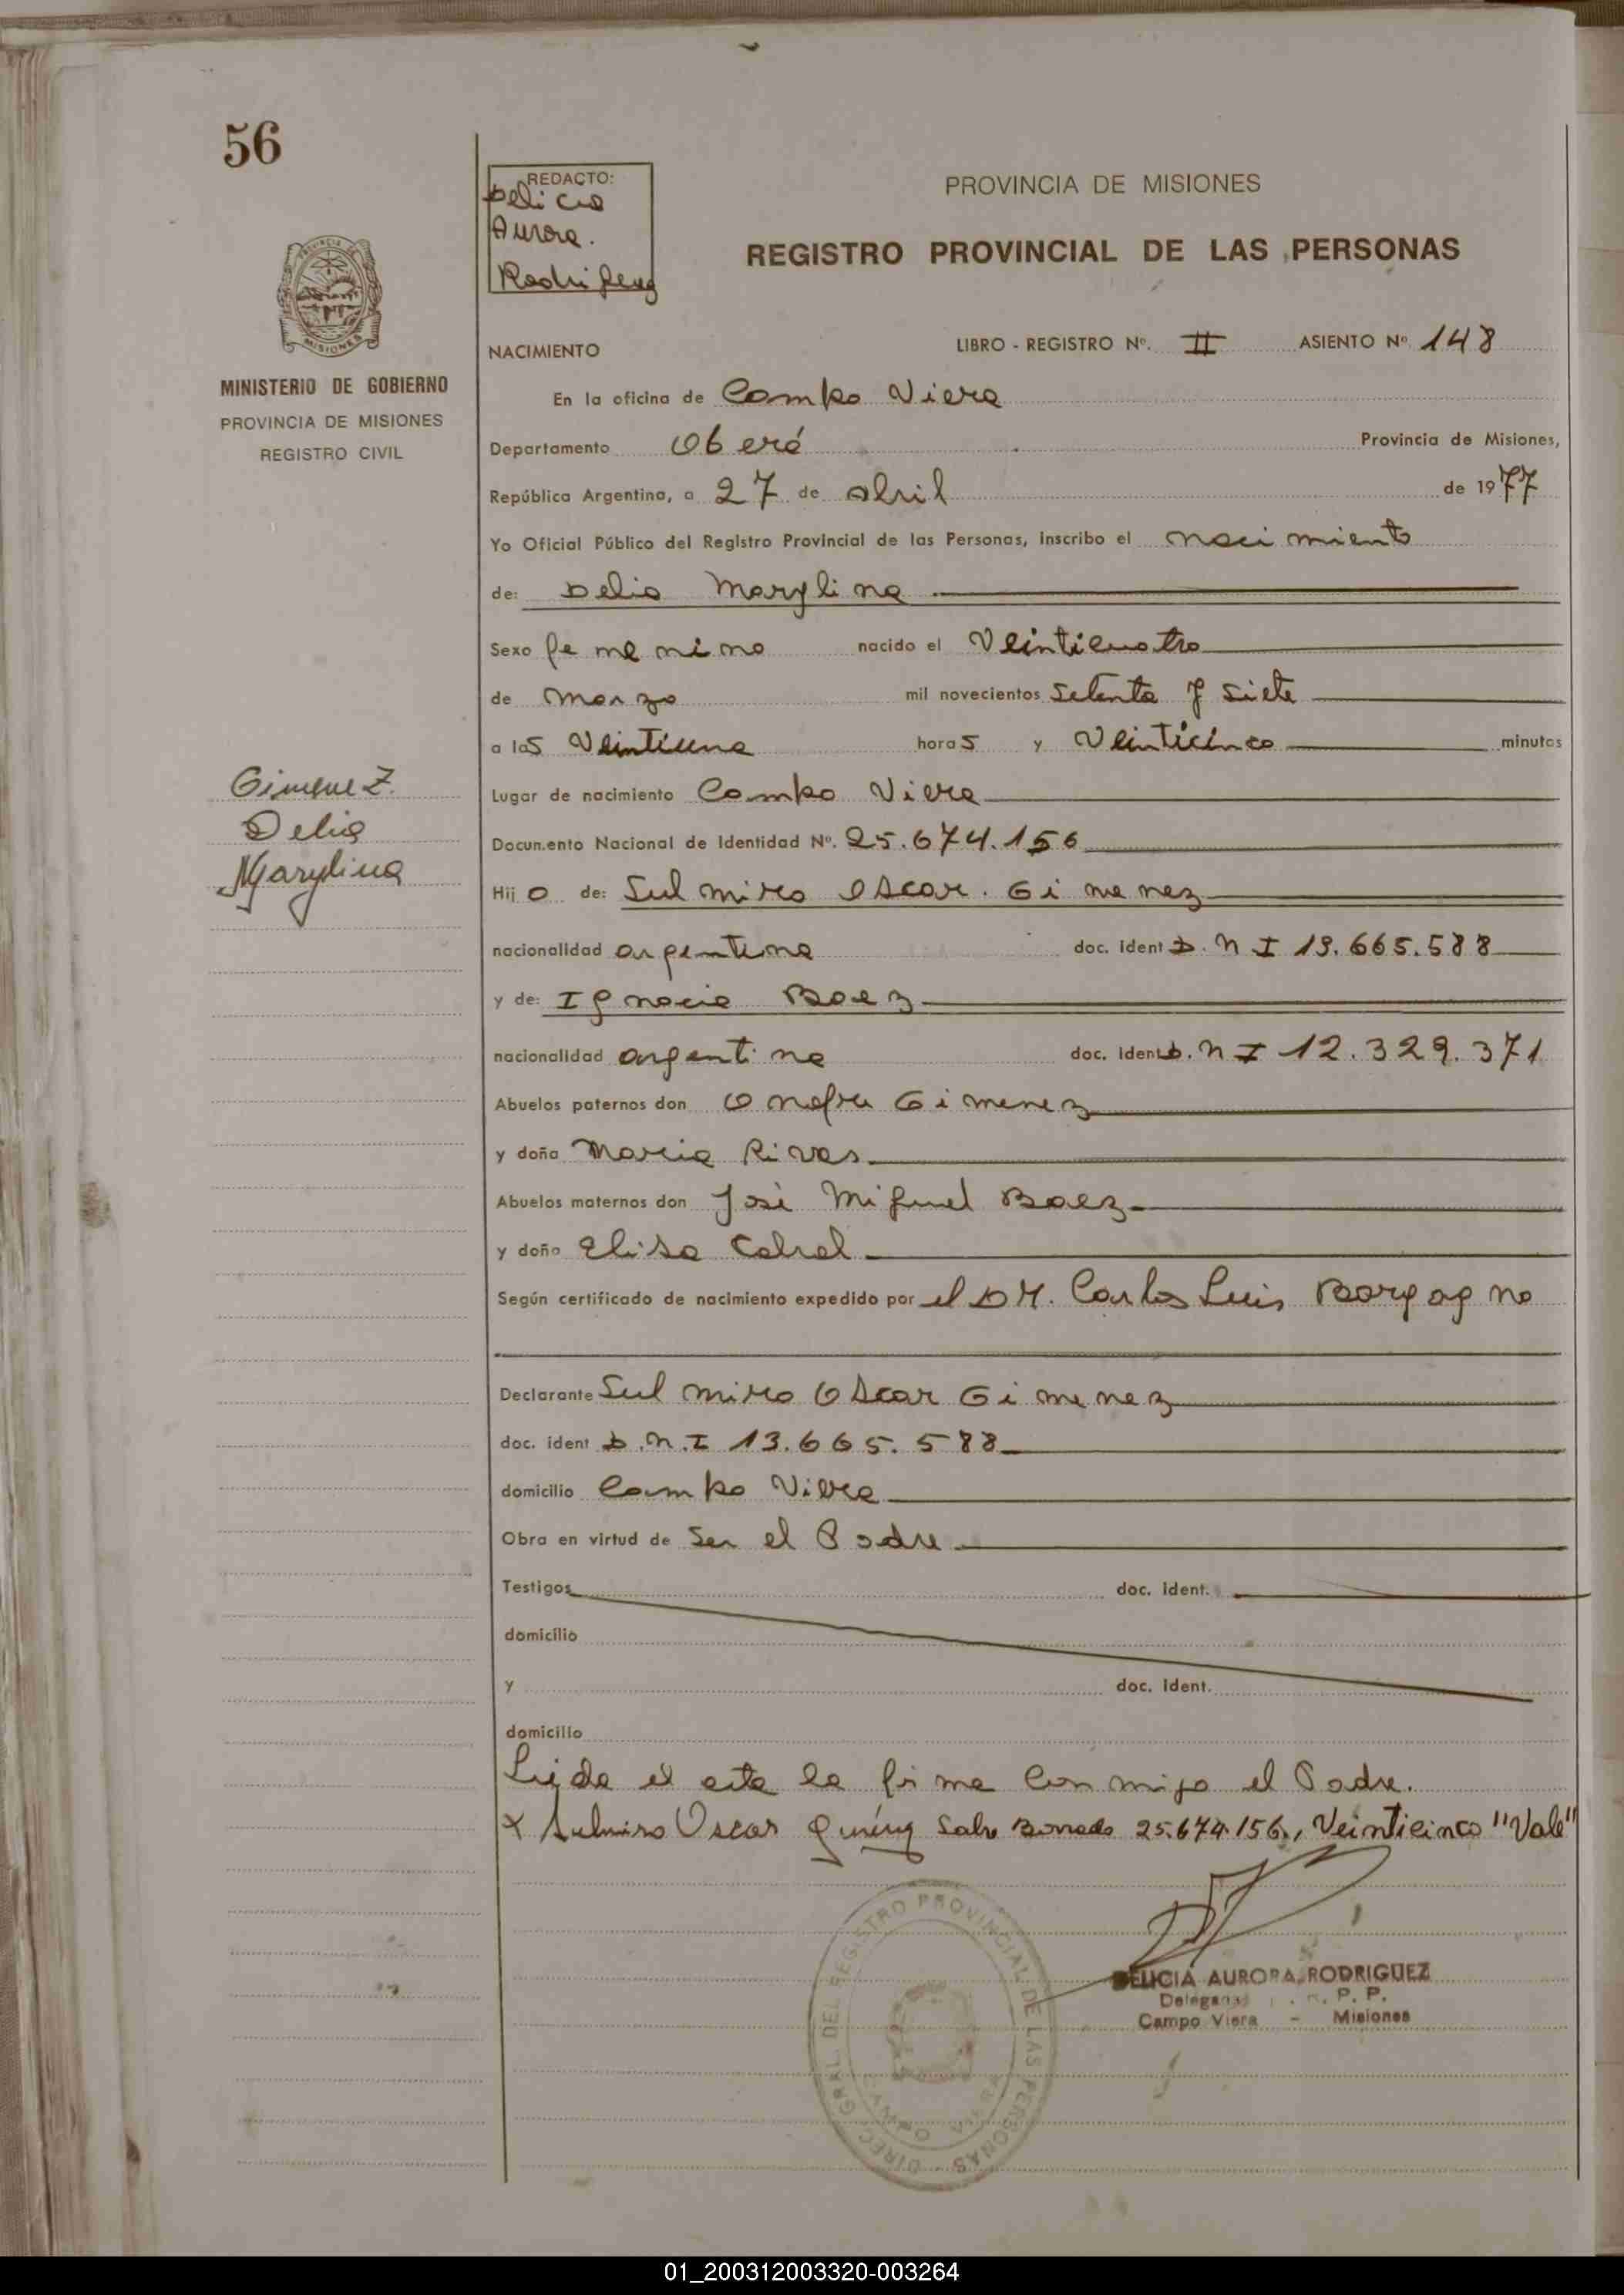 56
REDACTO:
Delicia
Aurora.
Rodriguez
PROVINCIA DE MISIONES
REGISTRO PROVINCIAL DE LAS PERSONAS
PROVINCIA DE
MISIONES
MINISTERIO DE GOBIERNO
PROVINCIA DE MISIONES
REGISTRO CIVIL
NACIMIENTO LIBRO - REGISTRO Nº. II ASIENTO Nº 148
En la oficina de Campo Viera
Departamento Oberá Provincia de Misiones,
República Argentina, a 27 de abril de 1977
Yo Oficial Público del Registro Provincial de las Personas, inscribo el nacimiento
de: Delia Marylina
Sexo femenino nacido el Veinticuatro
de marzo mil novecientos Setenta y Siete
a las Veintiuna horas y Veinticinco minutos
Gimenez.
Delia
Marylina
Lugar de nacimiento Campo Viera
Documento Nacional de Identidad Nº. 25.674.156
Hija de: Sulmiro Oscar. Gimenez
nacionalidad argentina doc. ident D.N I 13.665.588
y de: Ignacia Baez
nacionalidad argentina doc. ident D.N I 12.329.371
Abuelos paternos don Onofre Gimenez
y doña Maria Rivas
Abuelos maternos don José Miguel Baez
y doña Elisa Cabral
Según certificado de nacimiento expedido por el DR. Carlos Luis Bargagno
Declarante Sulmiro Oscar Gimenez
doc. ident D.N.I 13.665.588
domicilio Campo Viera
Obra en virtud de Ser el Padre
Testigos doc. ident.
domicilio
y doc. ident.
domicilio
Leida el acta la firma Conmigo el Padre.
x Sulmiro Oscar Salv Borrado 25.674.156., Veinticinco "Vale"
DIREC. GRAL. DEL REGISTRO PROVINCIAL DE LAS PERSONAS
DELICIA AURORA RODRIGUEZ
R. P. P.
Campo Viera - Misiones
01_200312003320-003264